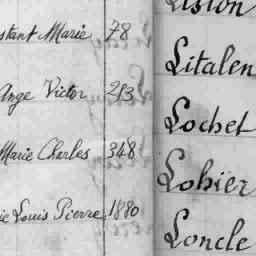 stant Marie 78
Ange Victor 253
Marie Charles 348
ie Louis Pierre 1880
Lision
Litalen
Lochet
Lohier
Loncle